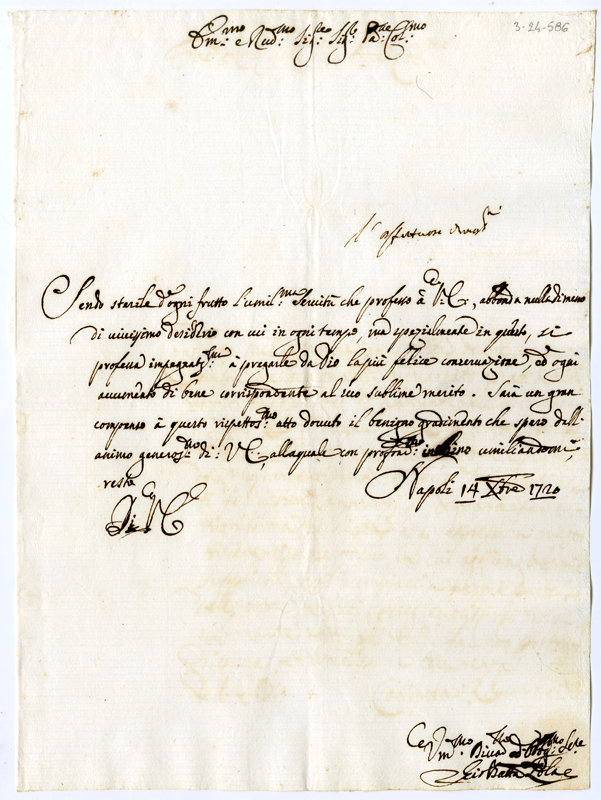 3-24-586
Em.mo e Rev.mo Sig.re Sig.r Pad.ne Col.mo
Sendo sterile d'ogni frutto l'umil.ma servitù che professo à V: E:, abbonda nulladimeno
di vivissimo desiderio con cui in ogni tempo, ma spezialmente in questo, si
professa impegnatis.ma à pregarle da Dio la più felice conservazione, ed ogni
aumento di bene corrispondente al suo sublime merito. Sarà un gran
compenso à questo rispettos.mo atto dovuto il benigno gradimento che spero dall'
animo generos.mo di: V: E:, alla quale con profond.mo inchino umiliandomi,
resto
Napoli 14 Xbre 1720
Di V: E:
Um.mo Div.mo ed Obb.mo Ser.re
Gio: Batta